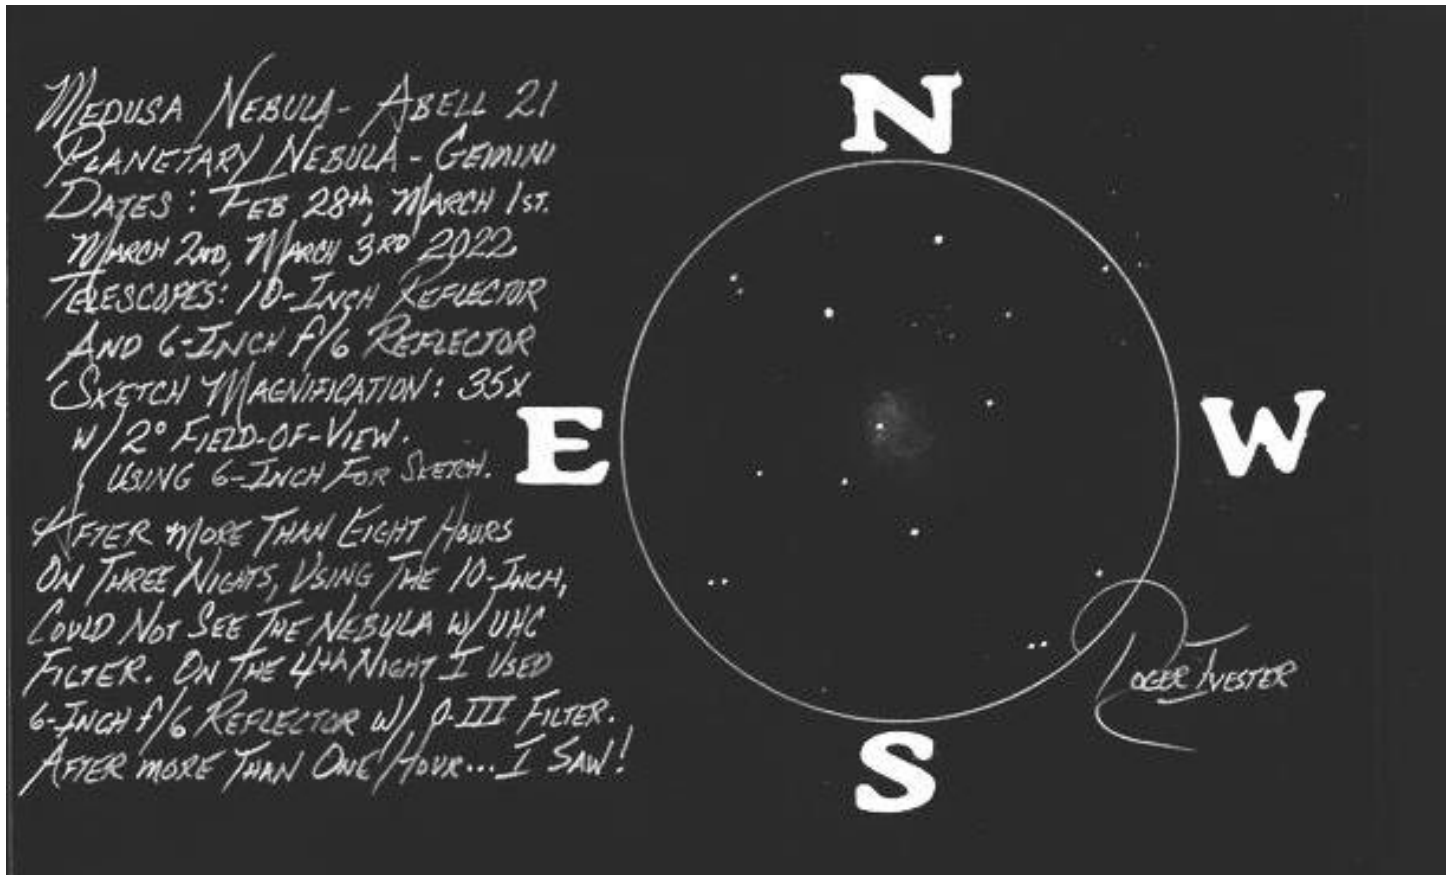 MEDUSA NEBULA - ABELL 21
PLANETARY NEBULA - GEMINI
DATES: FEB 28th, MARCH 1ST.
MARCH 2ND, MARCH 3RD 2022
TELESCOPES: 10-INCH REFLECTOR
AND 6-INCH f/6 REFLECTOR
SKETCH MAGNIFICATION: 35X
W/ 2° FIELD-OF-VIEW.
USING 6-INCH FOR SKETCH.
AFTER MORE THAN EIGHT HOURS
ON THREE NIGHTS, USING THE 10-INCH,
COULD NOT SEE THE NEBULA W/ UHC
FILTER. ON THE 4th NIGHT I USED
6-INCH f/6 REFLECTOR W/ O-III FILTER.
AFTER MORE THAN ONE HOUR... I SAW!
N
E
W
S
ROGER IVESTER